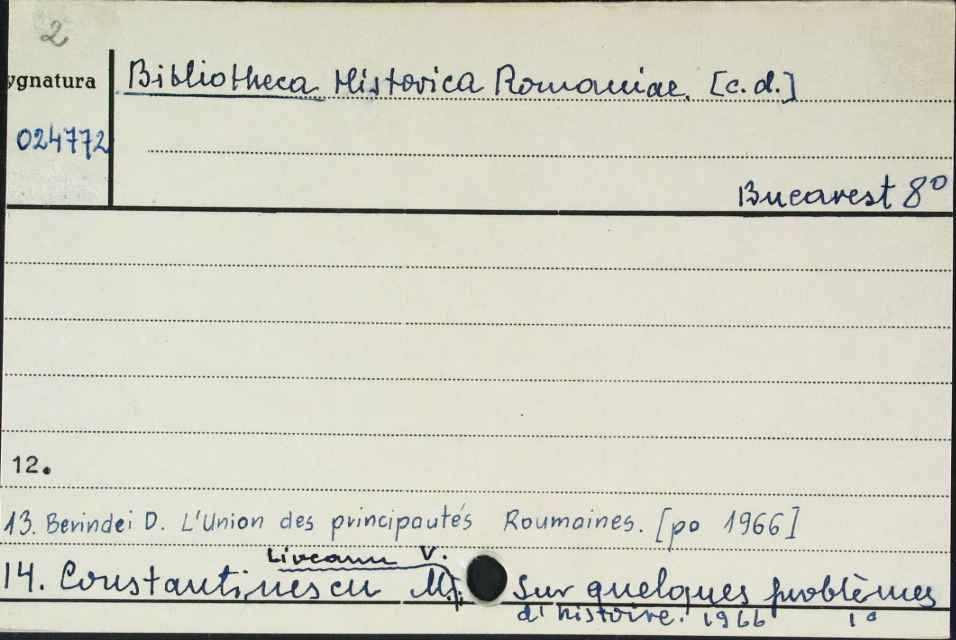 2
ygnatura
Bibliotheca Historica Romaniae. [c.d.]
024772
Bucarest 8°
12.
13. Berindei D. L'Union des principautés Roumaines. [po 1966]
Liveanu V.
14. Constantinescu M. Sur quelques problèmes
d'histoire. 1966 1a